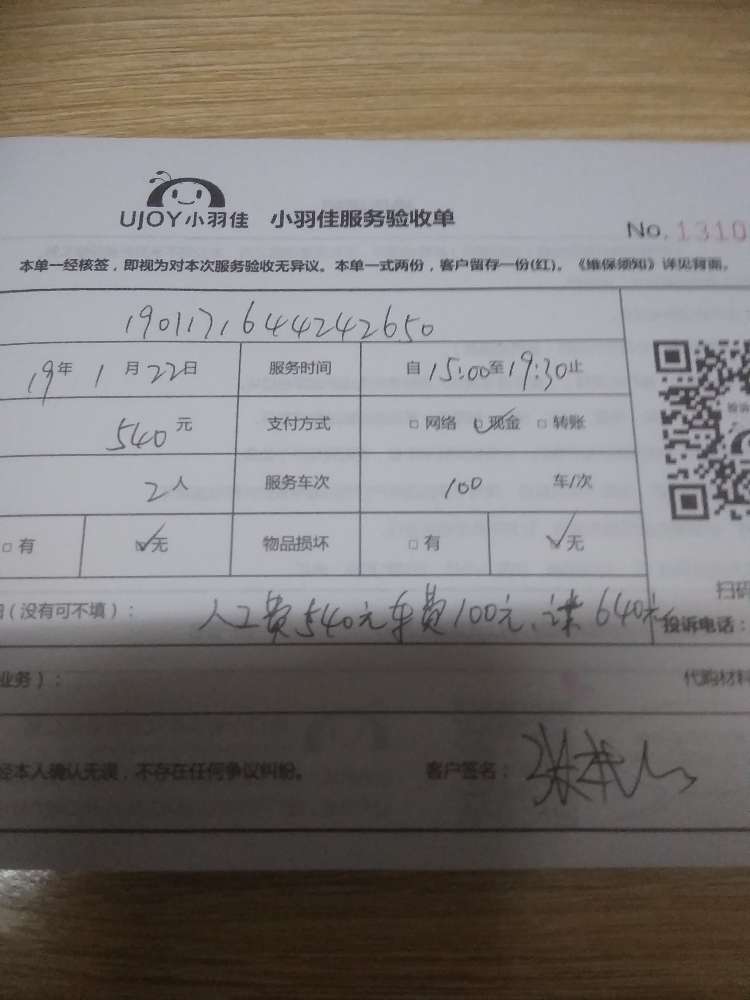 UJOY小羽佳 小羽佳服务验收单
No.1310
本单一经核签，即视为对本次服务验收无异议。本单一式两份，客户留存一份(红)。《维保须知》详见背面。
1901171644242650
19年1月22日 服务时间 自15:00至19:30止
540元 支付方式 □网络 ☑现金 □转账
2人 服务车次 100 车/次
□有 ☑无 物品损坏 □有 ☑无
扫码
(没有可不填)： 人工费540元车费100元、计 640元
投诉电话：
业务)： 代购材料
经本人确认无误，不存在任何争议纠纷。 客户签名：